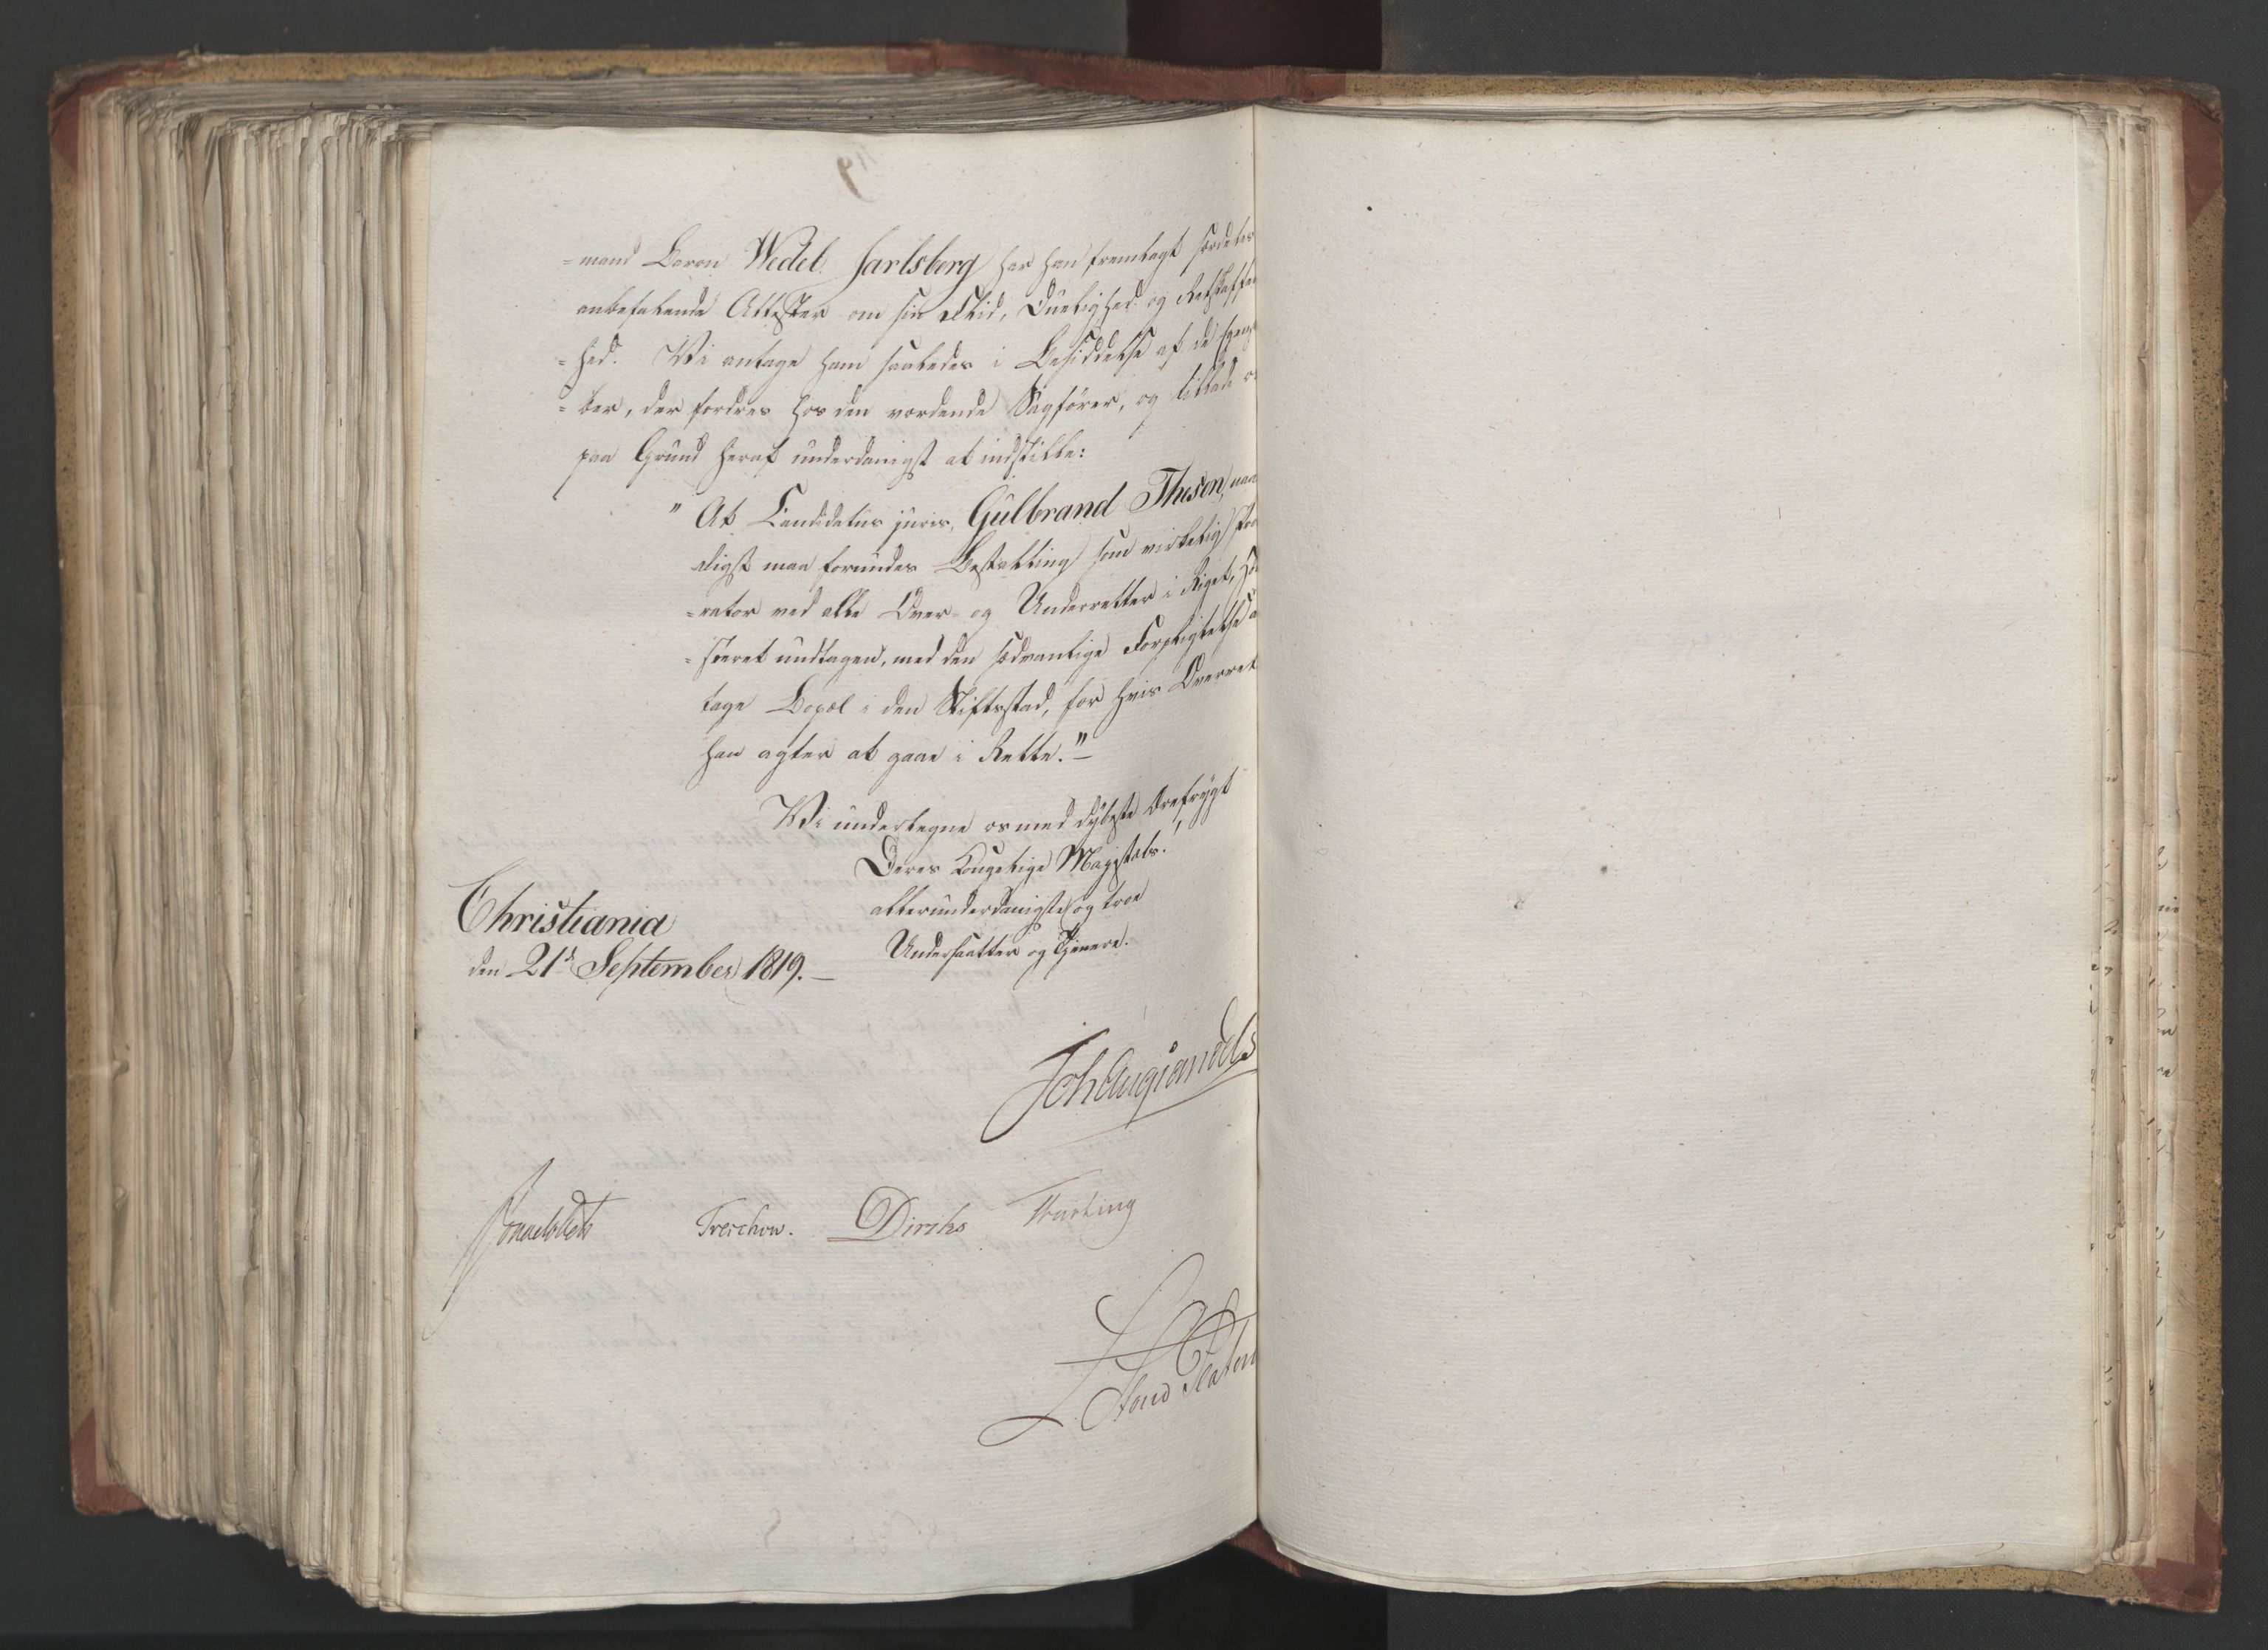 =mand Baron Wedel Jarlsberg har han fremlagt særdeles
anbefalende Attester om sin Flid, Duelighed og Retskaffen
=hed. Vi antage ham saaledes i Besiddelse af de Egenska
=ber, der fordres hos den vordende Sagfører, og tillade os
paa Grund heraf underdanigst at indstille:
"At Candidatus juris, Gulbrand Thesen, naa
digst maa forundes Bestalling som virkelig Procu
=rator ved alle Over- og Underretter i Riget, Høi
=steret undtagen, med den sædvanlige Forpligtelse at
tage Bopæl i den Stiftsstad, for hvis Overret
han agter at gaae i Rette."
Vi undertegne os med dybeste Ærefrygt
Deres Kongelige Majestæts
allerunderdanigste og troe
Undersaatter og Tjenere.
Christiania
den 21de September 1819.
Joh Aug Sandels
Sommerfeldt Treschow. Diriks Fasting
L. Stoud Platou